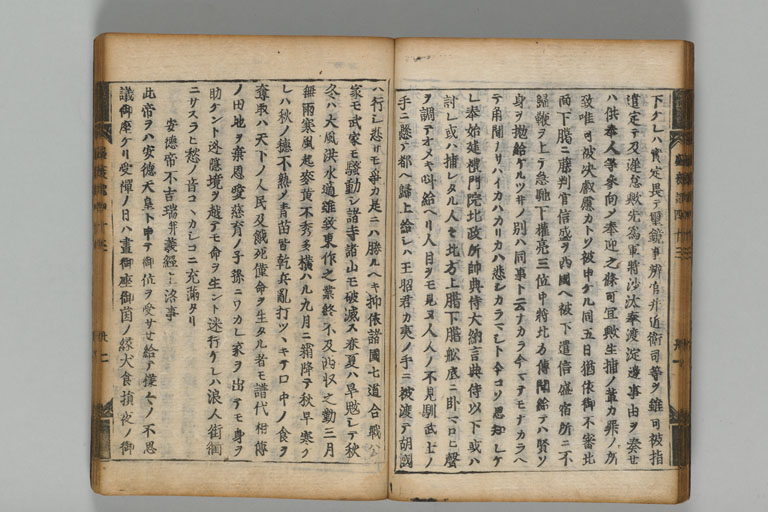 下タレハ實定畏テ璽鏡事辨官并近衛司等ヲ雖可被指
遣定テ及遲怠歟先爲軍將沙汰奉渡淀邊事由ヲ奏セ
ハ供奉人等參向シ奉迎之條可宜歟生捕ノ輩カ罪ノ所
致唯可被決叡慮カトソ被申ケル同五日猶依御不審北
面下臈ニ藤判官信盛ヲ西國ヘ被下遣信盛宿所ニ不
歸鞭ヲ上テ急馳下權亮三位中將北方傳聞給テハ賢ソ
身ヲ抛給ケルソ世ノ別ハ同事ト云ナカラ今マテモナカラヘ
テ角聞ノリハイカハカリカハ悲シカラマシト今コソ思知レケ
レ奉始建禮門院北政所帥典侍大納言典侍以下或ハ
討レ或ハ捕レタル人々北方上臈下臈舩底ニ臥マロヒ聲
ヲ調テオメキ叫給ヘリ人目ヲモ見ヌ人々ノ不見馴武士ノ
手ニ懸テ都ヘ歸上給シハ王昭君カ夷ノ手ニ被渡テ胡國
ヘ行シ悲サモ爭カ是ニハ勝ルヘキ抑依諸國七道合戰公
家モ武家モ騷動シ諸寺諸山モ破滅ス春夏ハ旱魃シテ秋
冬ハ大風洪水適雖致東作之業終不及西收之勤三月
無雨寒風起麥黄不秀多横ハル九月ニ霜降テ秋早寒ク
シハ秋ノ穗不熟メ青苗皆乾兵亂打ツヽキテ口中ノ食ヲ
奪取ハ天下ノ人民及餓死僅命ヲ生タル者モ譜代相傳
ノ田地ヲ棄恩愛慈育ノ子孫ニワカレ家ヲ出テモ身ヲ
助ケント逃境ヲ越テモ命ヲ生ント迷行ケレハ浪人街衢
ニサスラヒ愁ノ音コヽカシコニ充滿タリ
安德帝不吉瑞并義經上洛事
此帝ヲハ安德天皇ト申テ御位ヲ受サセ給テ樣々ノ不思
議御座ケリ受禪ノ日ハ晝御座御茵ノ縁犬食損夜ノ御